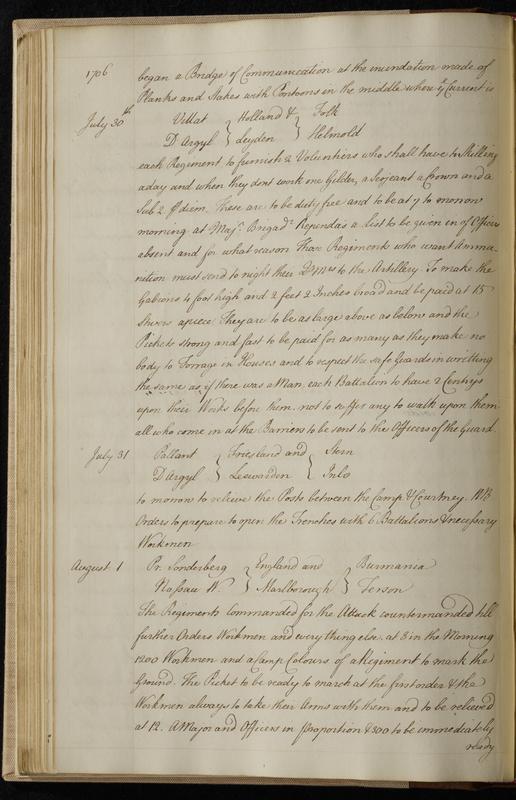 1706 began a Bridge of Communication at the inundation made of
Planks and Stakes with Pontoons in the middle where ye Current is
July 30th Villat } Holland & } Folk
D'Argyl } Leyden } Helmold
each Regiment to furnish 2 Voluntiers who shall have 4 Skilling
a day and when they dont work one Gilder, a Serjeant a Crown and a
Sub 2. pr diem. These are to be duty free and to be at 7 to morrow
morning at Majr. Brigadr. a List to be given in of Officers
absent and for what reason Those Regiments who want Ammu-
nition must send to night their Qr Mrs to the Artillery. To make the
Gabions 4 foot high and 2 feet 2 Inches broad and be paid at 15
Stivers a piece They are to be as large above as below and the
Pickets strong and fast to be paid for as many as they make no
body to Forrage in Houses and to respect the safe Guards in writting
the same as if there was a Man. each Battalion to have 2 Centrys
upon their Works before them. not to suffer any to walk upon them
all who come in at the Barriers to be sent to the Officers of the Guard
July 31 Pallant } Friesland and { Stern
D'Argyl } Lewarden { Inlo
to morrow to relieve the Posts between the Camp & Courtney. NB
Orders to prepare to open the Trenches with 6 Battalions & necessary
Workmen
August 1 Pr. Sonderberg } England and } Burmania
Nassau W. } Marlborough } Ferson
The Regiments Commanded for the Attack countermanded till
further Orders Workmen and every thing else. at 8 in the Morning
1200 Workmen and a Camp Colours of a Regiment to mark the
Ground. The Picket to be ready to march at the first order & the
Workmen always to take their Arms with them and to be relieved
at 12. A Major and Officers in proportion & 300 to be immediately
ready